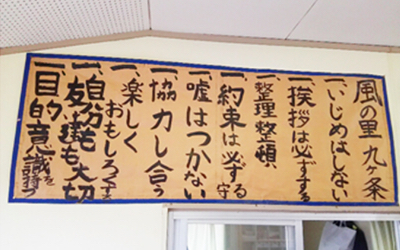 風の里 九ヶ条
一、いじめはしない
一、挨拶は必ずする
一、整理整頓
一、約束は必ず守る
一、嘘はつかない
一、協力し合う
一、楽しくおもしろくする
一、自分も友達も大切
一、目的意識を持つ